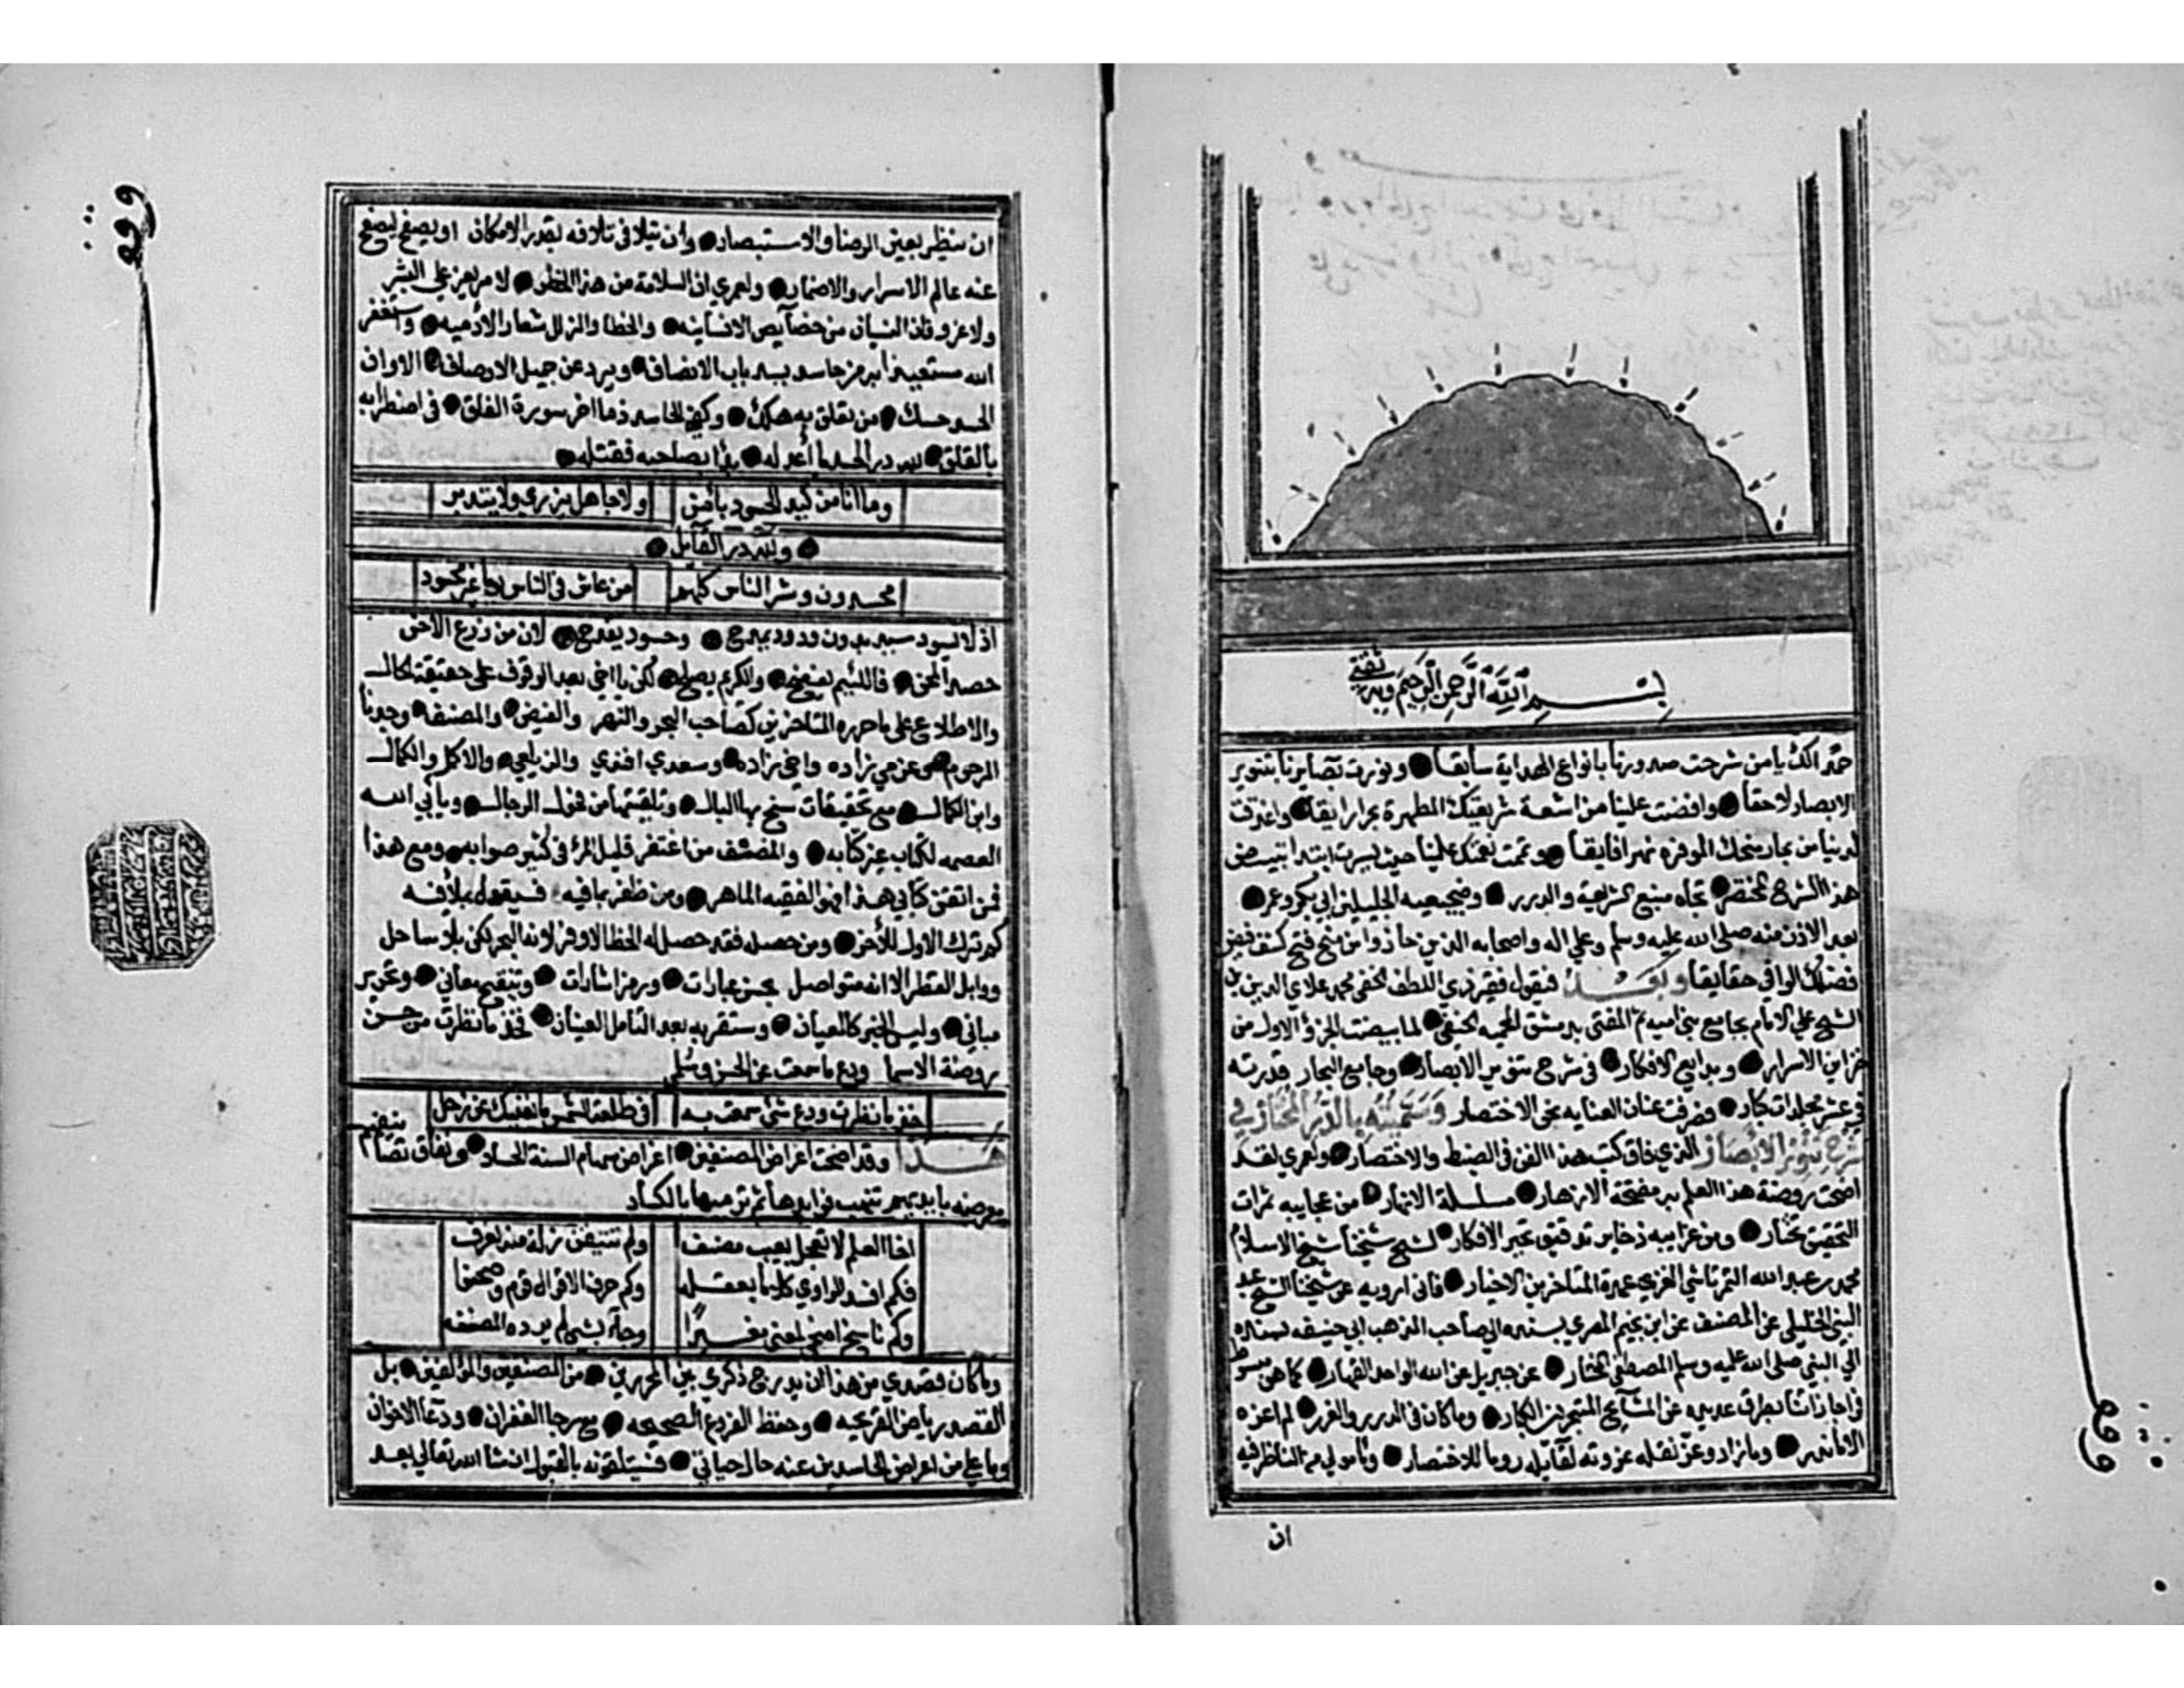 بسم الله الرحمن الرحيم وبه ثقتي
حمدا لك يا من شرحت صدورنا بانواع الهداية سابقا ونورت بصايرنا بتنوير
الابصار لاحقا وافضت علينا من اشعة شريعتك المطهرة بحرا رايقا واغدقت
لدينا من بحار منحك الموفرة نهرا فايقا وتممت نعمتك علينا حيث يسرت ابتدا تبييض
هذا الشرح المختصر تجاه منبع الشريعة والدرر وضجيعيه الجليلين ابي بكر وعمر
بعد الاذن منه صلى الله عليه وسلم وعلى اله واصحابه الذين حازوا من منح فتح كشف فيض
فضلك الوافي حقايقا وبعد فيقول فقير ذي اللطف الخفي محمد علاي الدين بن
الشيخ علي الامام بجامع بني اميه ثم المفتي بدمشق المحميه الحنفي لما بيضت الجزؤ الاول من
خزاين الاسرار وبدايع الافكار في شرح تنوير الابصار وجامع البحار قدرته
في عشر مجلدات كبار فصرفت عنان العنايه نحو الاختصار وسميته بالدر المختار في
شرح تنوير الابصار الذي فاق كتب هذا الفن في الضبط والاختصار ولعمري لقد
اضحت روضة هذا العلم به مفتحة الازهار مسلسلة الانهار من عجايبه ثمرات
التحقيق تختار ومن غرايبه ذخاير تدقيق تحير الافكار لشيخ شيخنا شيخ الاسلام
محمد بن عبد الله التمرتاشي الغزي عمدة المتاخرين الاخيار فاني ارويه عن شيخنا الشيخ عبد
النبي الخليلي عن المصنف عن ابن نجيم المصري بسنده الي صاحب المذهب ابي حنيفه بسنده
الي النبي صلى الله عليه وسلم المصطفى المختار عن جبريل عن الله الواحد القهار كما هو مبسوط
في اجازاتنا بطرق عديده عن المشايخ المتبحرين الكبار وما كان في الدرر والغرر لم اعزه
الا ما ندر وما زاد وعز نقله عزوته لقايله روما للاختصار ومامولي من الناظر فيه
ان
ان ينظر بعين الرضا والاستبصار وان يتلافى تلافه بقدر الامكان او يصفح ليصفح
عنه عالم الاسرار والاضمار ولعمري ان السلامة من هذا الخطر لامر يعز على البشر
ولا غرو فان النسيان من خصايص الانسانيه والخطا والزلل شعار الادميه واستغفر
الله مستعيذا به من حاسد يسد باب الانصاف ويرد عن جميل الاوصاف الا وان
الحسد حسك من تعلق به هلك وكفى للحاسد ذما اخر سورة الفلق في اضطرابه
بالقلق لله در الحسد ما أعدله بدأ بصاحبه فقتله
وما انا من كيد الحسود بآمن ولا جاهل يزري ولا يتدبر
ولله در القايل
محسدون وشر الناس كلهمو من عاش في الناس يوما غير محسود
اذ لا يسود سيد بدون ودود يمدح وحسود يقدح لان من زرع الاحن
حصد المحن فاللئيم يفضح والكريم يصلح لكن يا اخي بعد الوقوف على حقيقة الحال
والاطلاع على ما حرره المتاخرين كصاحب البحر والنهر والفيض والمصنف وجدنا
المرحوم عزمي زاده واخي زاده وسعدي افندي والزيلعي والاكمل والكمال
وابن الكمال مع تحقيقات سنح بها البال وتلقيتها من فحول الرجال ويابي الله
العصمه لكتاب غير كتابه والمنصف من اغتفر قليل خطا المرء في كثير صوابه ومع هذا
فمن اتقن كتابي هذا فهو الفقيه الماهر ومن ظفر بما فيه فسيقول بملأ فيه
كم ترك الاول للاخر ومن حصله فقد حصل له الحظ الاوفر لانه البحر لكن بلا ساحل
ووابل القطر الا انه متواصل بحسن عبارات ورمز اشارات وتنقيح معاني وتحرير
مباني وليس الخبر كالعيان وستقر به بعد التامل العينان فخذ ما نظرت من حسن
روضة الاسما ودع ما سمعت عن الحسن وسلمى
خذ ما نظرت ودع شئ سمعت به في طلعة الشمس ما يغنيك عن زحل
هذا وقد اضحت اعراض المصنفين اغراض سهام السنة الحساد ونفايس تصانيفهم
معرضه بايديهم تنتهب فوايدها ثم ترميها بالكساد
اخا العلم لا تعجل بعيب مصنف ولم تتيقن زلة منه تعرف
فكم افسد الراوي كلاما بعقله وكم حرف الاقوال قوم وصحفوا
وكم ناسخ اضحى لمعنى مغيرًا وجاء بشي لم يرده المصنف
وما كان قصدي من هذا ان يدرج ذكري بين المحررين من المصنفين والمؤلفين بل
القصد رياض القريحه وحفظ الفروع الصحيحه مع رجا الغفران ودعا الاخوان
وما علي من اعراض الحاسدين عنه حال حياتي فسيتلقونه بالقبول ان شا الله تعالى بعد
وقف
وقف